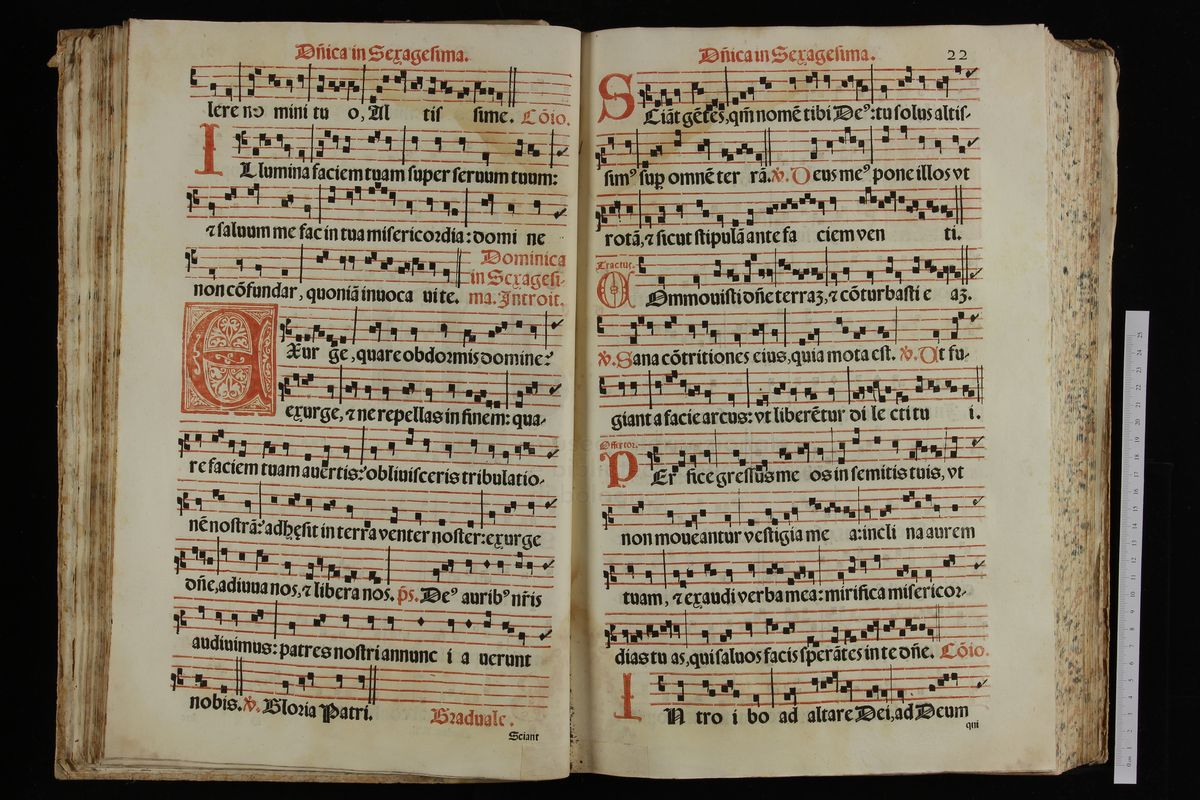 Dñica in Sexagesima.
lere nɔ mini tu o, Al tis sime. Cōio.
I
Llumina faciem tuam super seruum tuum:
⁊ saluum me fac in tua misericordia: domi ne
non cōfundar, quoniā inuoca ui te.
Dominica
in Sexagesi-
ma. Introit.
E
Xur ge, quare obdormis domine?
exurge, ⁊ ne repellas in finem: qua-
re faciem tuam auertis? obliuisceris tribulatio-
nē nostrā? adhęsit in terra venter noster: exurge
dñe, adiuua nos, ⁊ libera nos. ps. Deꝰ auribꝰ nr̄is
audiuimus: patres nostri annunc i a uerunt
nobis. ℣. Gloria Patri.
Graduale.
Sciant
Dñica in Sexagesima. 22
S
Ciāt gētes, qm̄ nomē tibi Deꝰ: tu solus altis-
simꝰ sup omnē ter rā. ℣. Deus meꝰ pone illos vt
rotā, ⁊ sicut stipulā ante fa ciem ven ti.
Tractus.
C
Ommouisti dñe terraʒ, ⁊ cōturbasti e aʒ.
℣. Sana cōtritiones eius, quia mota est. ℣. Vt fu-
giant a facie arcus: vt liberētur di le cti tu i.
Offertor.
P
Er fice gressus me os in semitis tuis, vt
non moueantur vestigia me a: incli na aurem
tuam, ⁊ exaudi verba mea: mirifica misericor-
dias tu as, qui saluos facis sperātes in te dñe. Cōio.
I
N tro i bo ad altare Dei, ad Deum
qui